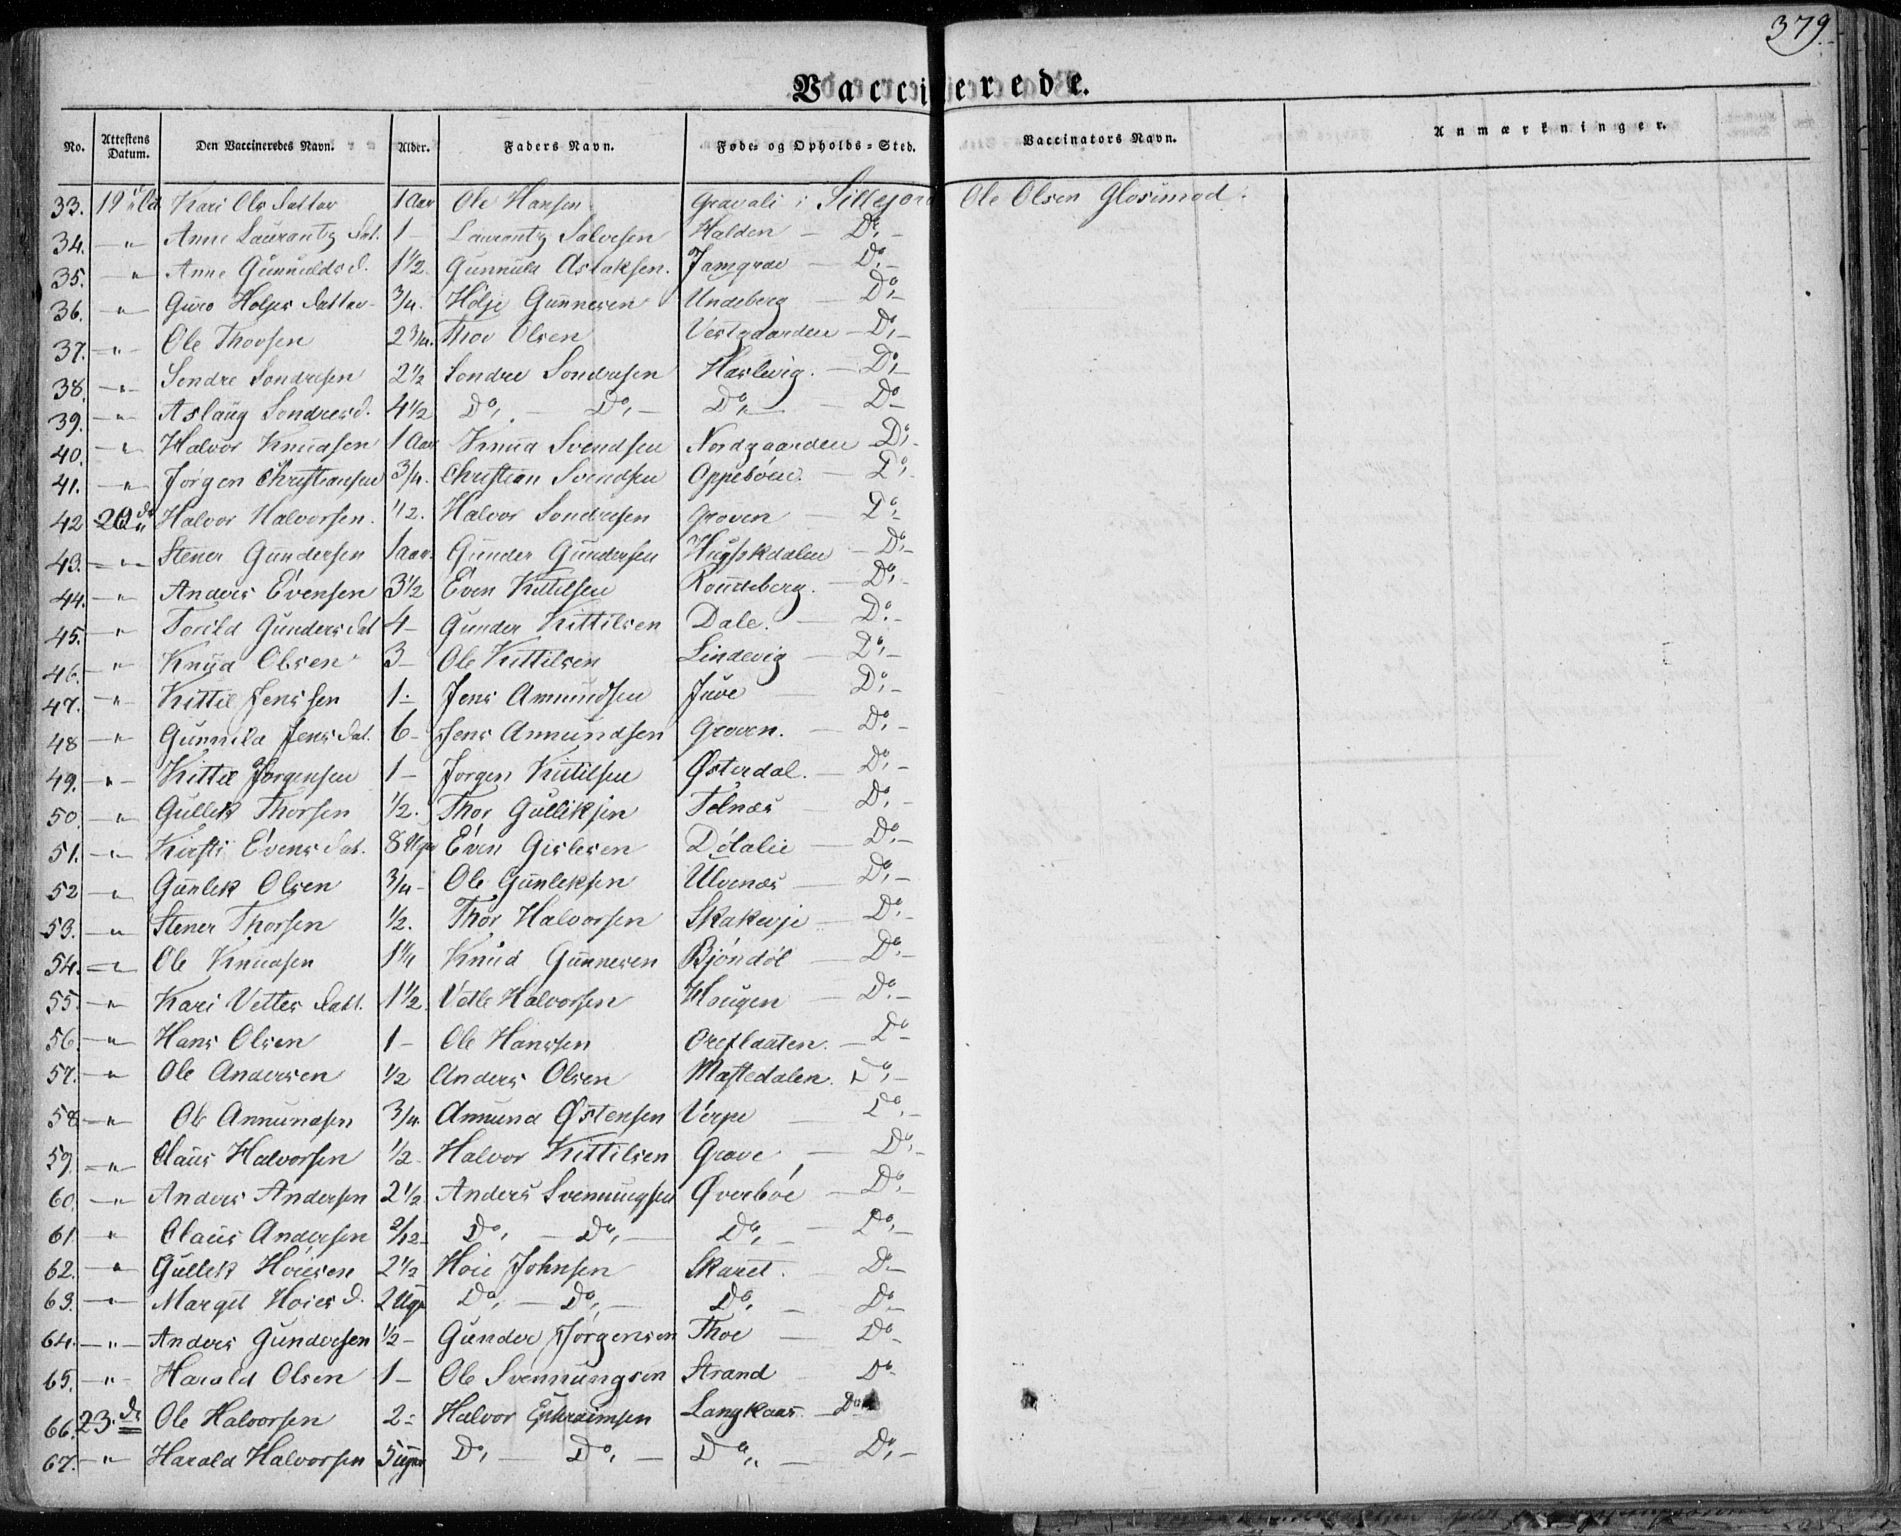 379.
Vaccinerede.
No. Attestens Datum. Den Vaccineredes Navn. Alder. Faders Navn. Føde- og Opholds-Sted. Vaccinators Navn. Anmærkninger.
33. 19 Kari Ols Datter 1 Aar Ole Hansen Gravali i Sillejord Ole Olsen Glosimod.
34. — " Anne Laurantz Dat. 1 — Laurantz Salvesen Halden — Do, —
35. — " Anne Gunnulds d. 1 1/2. Gunnuld Aslaksen. Jamgrav — Do, —
36. — " Guro Holjes Datter 3/4. Holje Gunnesen Undeberg — Do, —
37. — " Ole Thorsen 2 3/4. Thor Olsen Vestgaarden — Do, —
38. — " Sondre Sondresen 2 1/2 Sondre Sondresen Haslevig. — Do, —
39. — " Aslaug Sondresd. 4 1/2 Do, — Do, — Do, — Do —
40. — " Halvor Knudsen 1 Aar Knud Svendsen Nordgaarden — Do, —
41. — " Jørgen Christiansen 3/4. Christian Svendsen Oppebøen. — Do, —
42 20 do Halvor Halvorsen. 1/2. Halvor Sondresen Groven Do, —
43. — " — Stener Gundersen 1 aar. Gunder Gundersen — Do, —
44. — " Anders Evensen 3 1/2 Even Kittilsen Roudeberg. — Do, —
45. — " Torild Gunders Dat 4 — Gunder Kittilsen Dale. — Do, —
46. — " Knud Olsen 3 — Ole Kittilsen Lindevig — Do, —
47. — " Kittil Jenssen 1 — Jens Amundsen Juve — Do, —
48 — " Gunnild Jens Dat. 6 — Jens Amundsen Groven. — Do, —
49. — " Kittil Jørgensen 1 — Jørgen Kittilsen Østerdal. — Do, —
50. — " Gullik Thorsen 1/2. Thor Gulliksen Folnæs — Do, —
51. — " Kirsti Evens Dat. 8 Uger Even Gislesen Dølalie — Do, —
52 — " Gunlek Olsen 3/4 — Ole Gunleksen Ulvenæs — Do, —
53. — " Stener Thorsen 1/2. Thor Halvorsen Skakevje Do, —
54. — " Ole Knudsen 1 1/4 Knud Gunnesen Bjøndøl — Do, —
55. — " Kari Vetles Datt. 1 1/2. Vetle Halvorsen Haugen — Do. —
56. — " Hans Olsen 1 — Ole Hanssen Oreflaaten. — Do —
57. — " Ole Andersen 1/2 Anders Olsen Mæstedalen. Do, —
58. — " Ole Amundsen 3/4. Amund Østensen Verpe — Do, —
59. — " Claus Halvorsen 1/2. Halvor Kittilsen Grave — Do, —
60. — " Anders Andersen 2 1/2 Anders Svenningsen Øverbøe — Do, —
61. — " Claus Andersen 2/12 Do, — Do, — Do, — Do, —
62. — " Gullik Høiesen 2 1/2 Høie Johnsen Skaret. — Do —
63. — " Margit Høies d. 2 Uge Do, — Do, — Do, — Do —
64. — " — Anders Gundersen 1/2 — Gunder Jørgensen Thoe — Do —
65. — " — Harald Olsen 1 — Ole Svennungsen Strand Do —
66. 23. do Ole Halvorsen 2 — Halvor Ephraimsen Langkaas — Do
67. — " Harald Halvorsen 5 uger Do, — Do, — Do, — Do, —